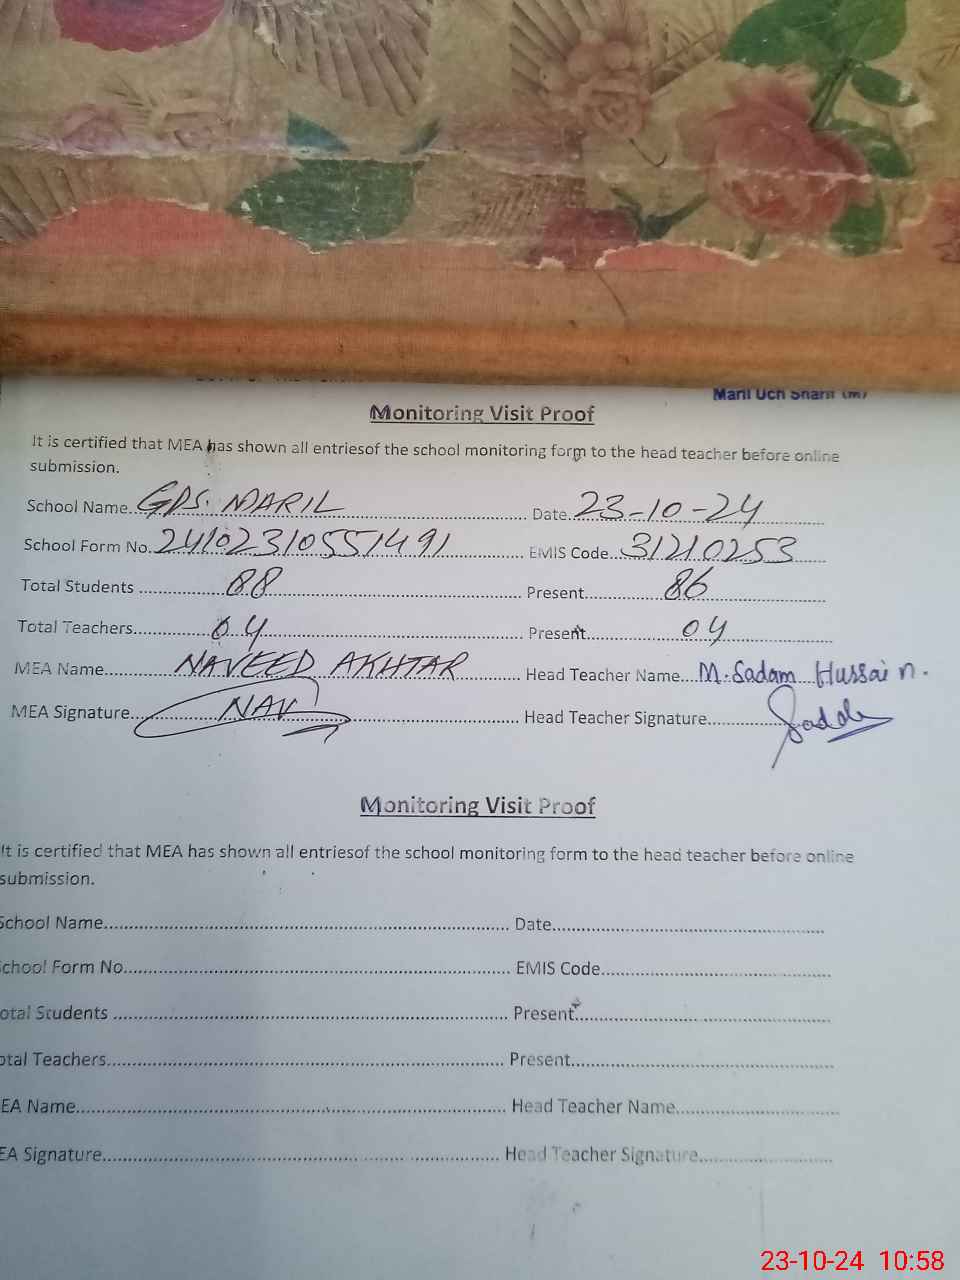 Maril Uch Sharif (m)
Monitoring Visit Proof
It is certified that MEA has shown all entriesof the school monitoring form to the head teacher before online
submission.
School Name GPS. MARIL Date 23-10-24
School Form No. 241023105551491 EMIS Code 31210253
Total Students 88 Present 86
Total Teachers 04 Present 04
MEA Name NAVEED AKHTAR Head Teacher Name M. Sadam Hussain.
MEA Signature NAV Head Teacher Signature
Monitoring Visit Proof
It is certified that MEA has shown all entriesof the school monitoring form to the head teacher before online
submission.
School Name Date
School Form No. EMIS Code
otal Students Present
otal Teachers Present
EA Name Head Teacher Name
EA Signature Head Teacher Signature
23-10-24 10:58